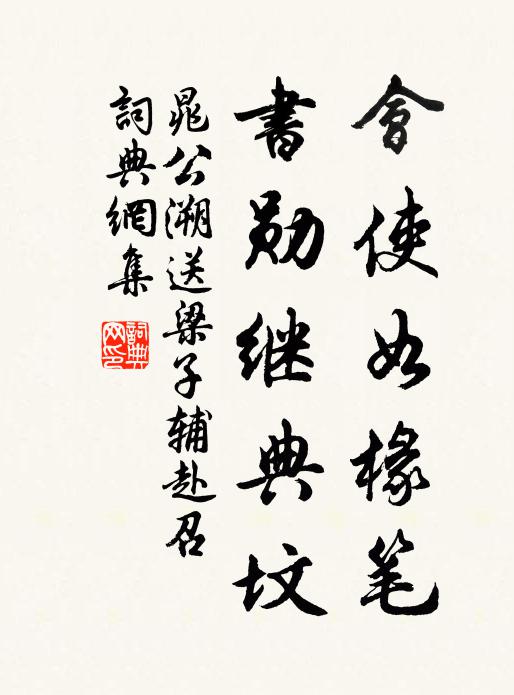 會使如椽笔
書勋继典坟
晁公溯送梁子辅赴召
詞典網集
詞典网印